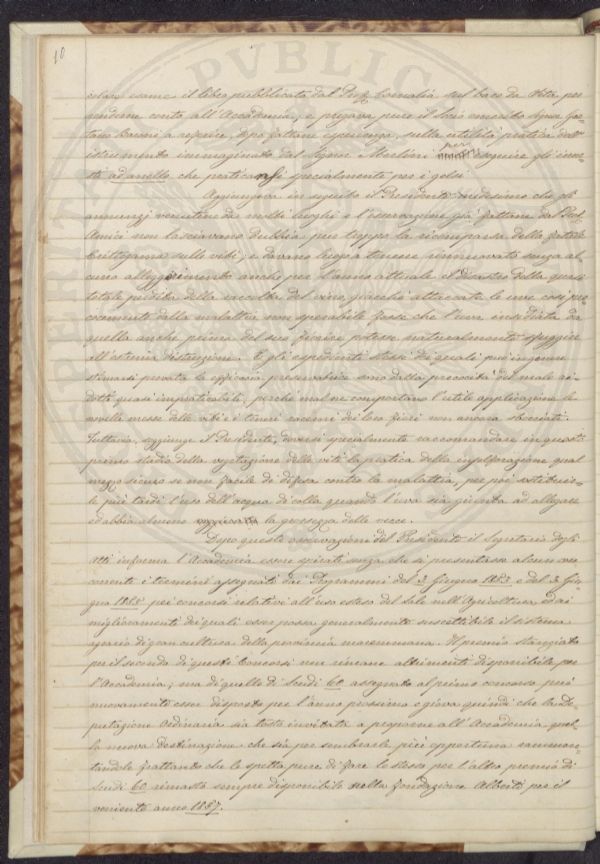 10
colar esame il libro pubblicato dal Prof. Cornalia sul baco da seta per
rendierne conto all'Accademia, e pregava pure il Socio onorato Signor Gae-
tano Baroni a referire, dopo fattane esperienza, sulla utilità pratica dello
istrumento immaginato dal Signor Merlini per eseguire gli inne-
sti ad anello che praticansi specialmente per i gelsi.
Aggiungeva in seguito il Presidente medesimo che gli
annunzj venuti da molti luoghi e l'osservazione già fattane dal Prof.
Amici non lasciavano dubbia pur troppo la ricomparsa della fatale
Crittogama sulle viti; e davano luogo a temere rinnuovato senza al-
cuno alleggerimento anche per l'anno attuale il disastro della quasi
totale perdita della raccolta del vino, giacchè attaccate le uve così pre-
cocemente dalla malattia non sperabile fosse che l'uva insidiata da
quella anche prima del suo fiorire potesse naturalmente sfuggire
all'estrema distruzione. E gli espedienti stessi dei quali può ingenerare
stimarsi provata la efficacia preservatrice sono dalla precocità del male ri-
dotti quasi impraticabili, perchè mal ne comportano l'utile applicazione le
novelle messe delle viti e i teneri racemi dei loro fiori non ancora sbocciati.
Tuttavia, soggiunge il Presidente, doversi specialmente raccomandare in questo
primo stadio della vegetazione delle viti la pratica della insolforazione qual
mezzo sicuro se non facile di difesa contro la malattia, per poi sostituir-
le più tardi l'uso dell'acqua di colla quando l'uva sia giunta ad allegare
ed abbia almeno la grossezza delle vecce.
Dopo queste osservazioni del Presidente il Segretario degli
Atti informa l'Accademia essere spirati senza che si presentasse alcun con-
corrente i termini assegnati dai Programmi del 3 Giugno 1853 e del 3 Giu-
gno 1855 pei concorsi relativi all'uso esteso del Sale nell'Agricoltura, ed ai
miglioramenti di quali esser possa generalmente suscettibile il sistema
agrario di gran cultura della provincia maremmana. Il premio stanziato
per il secondo di questi Concorsi non rimane altrimenti disponibile per
l'Accademia; ma di quello di Scudi 60 assegnato al primo concorso può
nuovamente esser disposto per l'anno prossimo e giova quindi che la De-
putazione Ordinaria sia tosto invitata a proporne all'Accademia quel-
la nuova destinazione che sia per sembrarle più opportuna rammen-
tandole frattanto che le spetta pure di fare lo stesso per l'altro premio di
Scudi 60 rimasto sempre disponibile nella fondazione Alberti per il
veniente anno 1857.